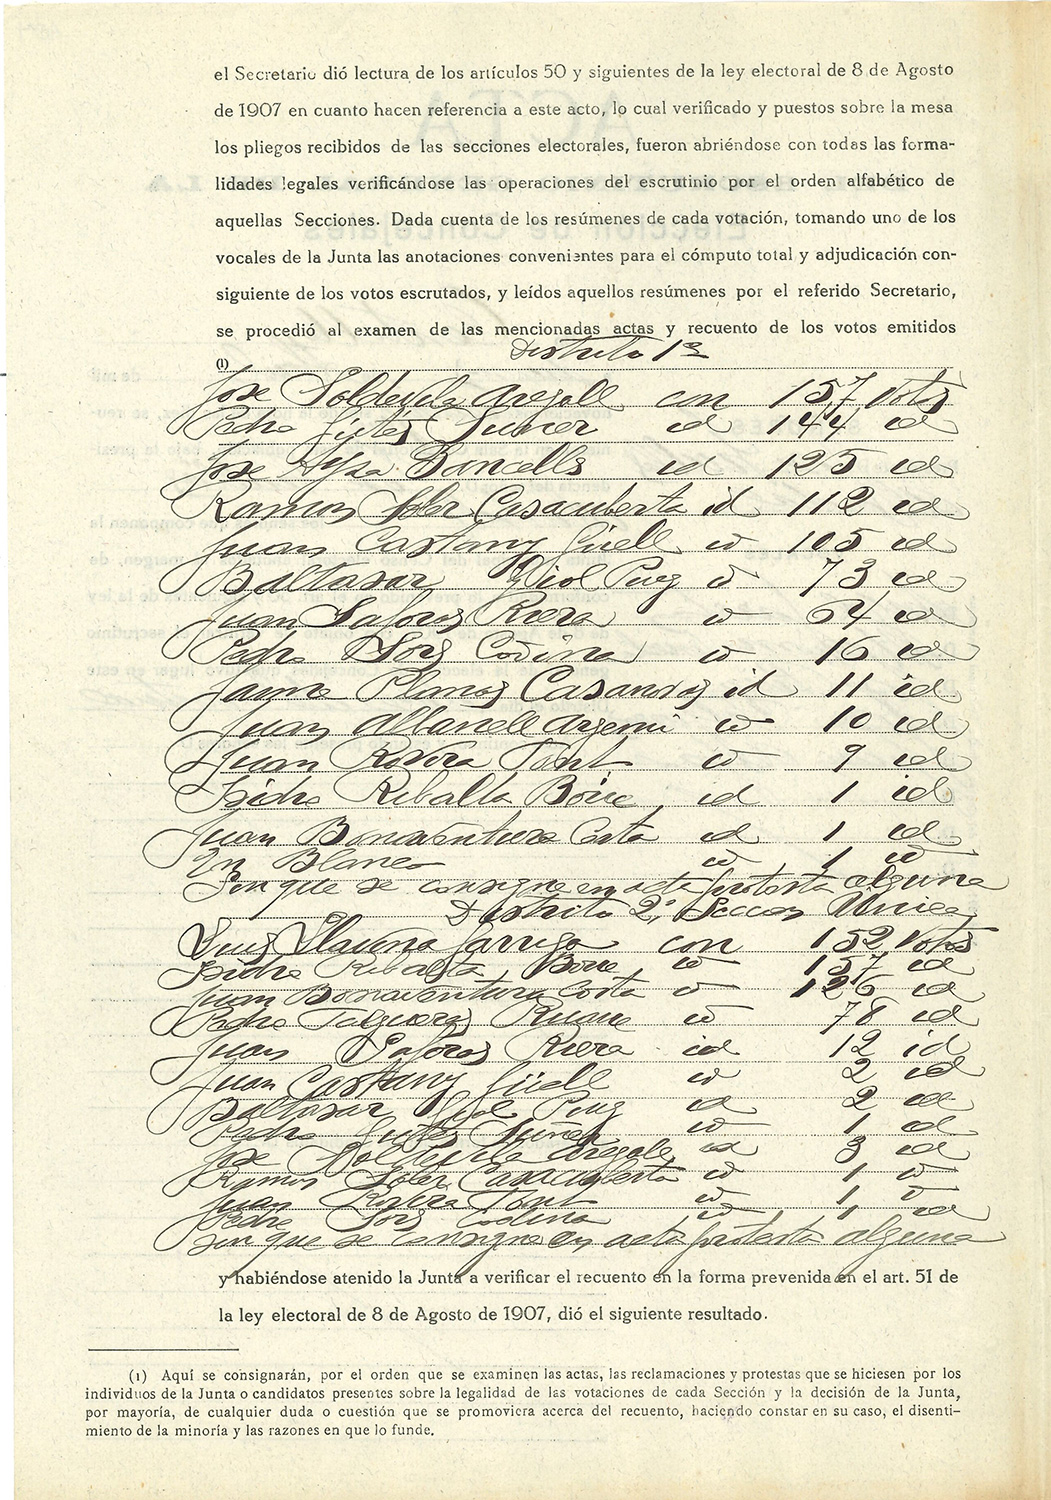 el Secretario dió lectura de los artículos 50 y siguientes de la ley electoral de 8 de Agosto
de 1907 en cuanto hacen referencia a este acto, lo cual verificado y puestos sobre la mesa
los pliegos recibidos de las secciones electorales, fueron abriéndose con todas las forma-
lidades legales verificándose las operaciones del escrutinio por el orden alfabético de
aquellas Secciones. Dada cuenta de los resúmenes de cada votación, tomando uno de los
vocales de la Junta las anotaciones convenientes para el cómputo total y adjudicación con-
siguiente de los votos escrutados, y leídos aquellos resúmenes por el referido Secretario,
se procedió al examen de las mencionadas actas y recuento de los votos emitidos
(1) Distrito 1º
Jose Soldevila Aregall con 157 votos
Pedro Suñer id 144 id
Jose Barcells id 125 id
Ramon Soler Casacuberta id 112 id
Juan Castany Güell id 105 id
Baltasar Giol Puig id 73 id
Juan Safores Riera id 64 id
Pedro Sors Codina id 16 id
Jaime Planas Casanovas id 11 id
Juan Albanell Argemi id 10 id
Juan Rovira Font id 9 id
Isidro Ribalta Boire id 1 id
Juan Bonaventura Costa id 1 id
En Blanco id 1 id
Sin que se consigne en acta protesta alguna
Distrito 2º Seccion Unica
Luis Llavina Garriga con 152 votos
Isidro Ribalta Boire id 157 id
Juan Bonaventura Costa id 126 id
Pedro Falgueras id 78 id
Juan Safores Riera id 12 id
Juan Castany Güell id 2 id
Baltasar Giol Puig id 2 id
Pedro Suñer id 1 id
Jose Soldevila Aregall id 3 id
Ramon Soler Casacuberta id 1 id
Juan Rovira Font id 1 id
Pedro Sors Codina id 1 id
Sin que se consigne en acta protesta alguna
y habiéndose atenido la Junta a verificar el recuento en la forma prevenida en el art. 51 de
la ley electoral de 8 de Agosto de 1907, dió el siguiente resultado.
(1) Aquí se consignarán, por el orden que se examinen las actas, las reclamaciones y protestas que se hiciesen por los
individuos de la Junta o candidatos presentes sobre la legalidad de las votaciones de cada Sección y la decisión de la Junta,
por mayoría, de cualquier duda o cuestión que se promoviera acerca del recuento, haciendo constar en su caso, el disenti-
miento de la minoría y las razones en que lo funde.